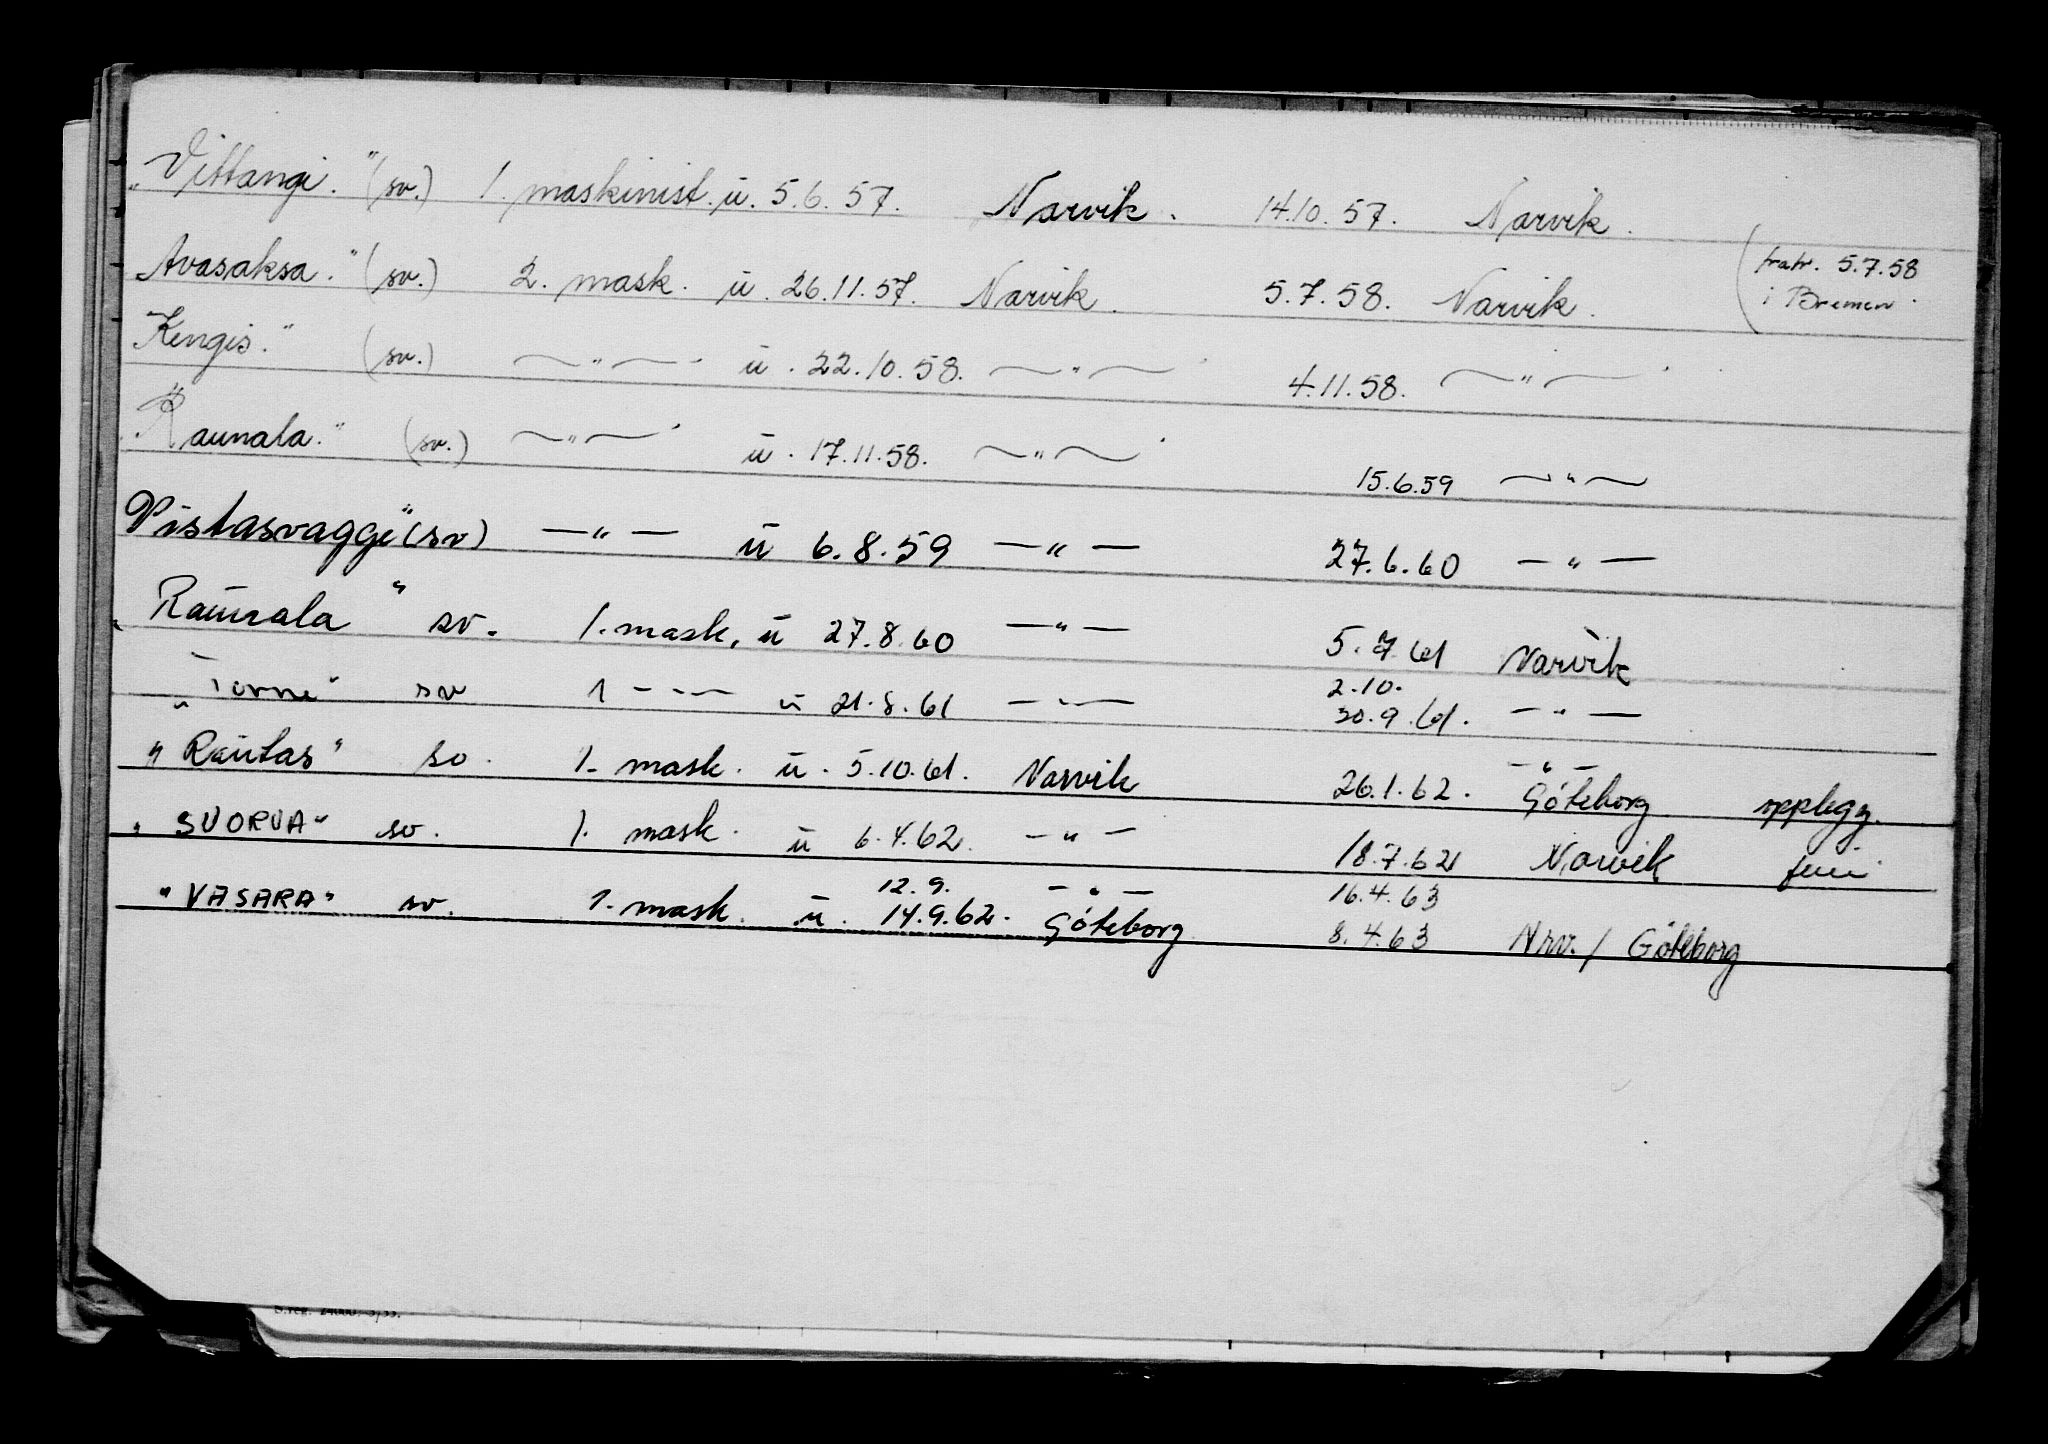 „Vittangi." (sv.) 1. maskinist. u. 5.6.57. Narvik. 14.10.57. Narvik.
Avasaksa." (sv.) 2. mask. u. 26.11.57. Narvik. 5.7.58. Narvik. (fratr. 5.7.58
i Bremen.
Kengis." (sv.) —"— u. 22.10.58. —"— 4.11.58. —"—
Raunala." (sv.) —"— u. 17.11.58. —"— 15.6.59 —"—
Vistasvagge" (sv) —"— u 6.8.59 —"— 27.6.60 —"—
„Raunala" sv. 1. mask. u 27.8.60 —"— 5.7.61 Narvik
2.10.
„Torne" sv 1 —"— u 21.8.61 —"— 30.9.61. —"—
—"—
"Rautas" sv. 1. mask. u. 5.10.61. Narvik 26.1.62. Göteborg opplegg.
"SUORVA" sv. 1. mask. u 6.4.62. —"— 18.7.62 Narvik ferie
12.9. —"— 16.4.63
"VASARA" sv. 1. mask. u. 14.9.62. Göteborg 8.4.63 Nrv. / Göteborg